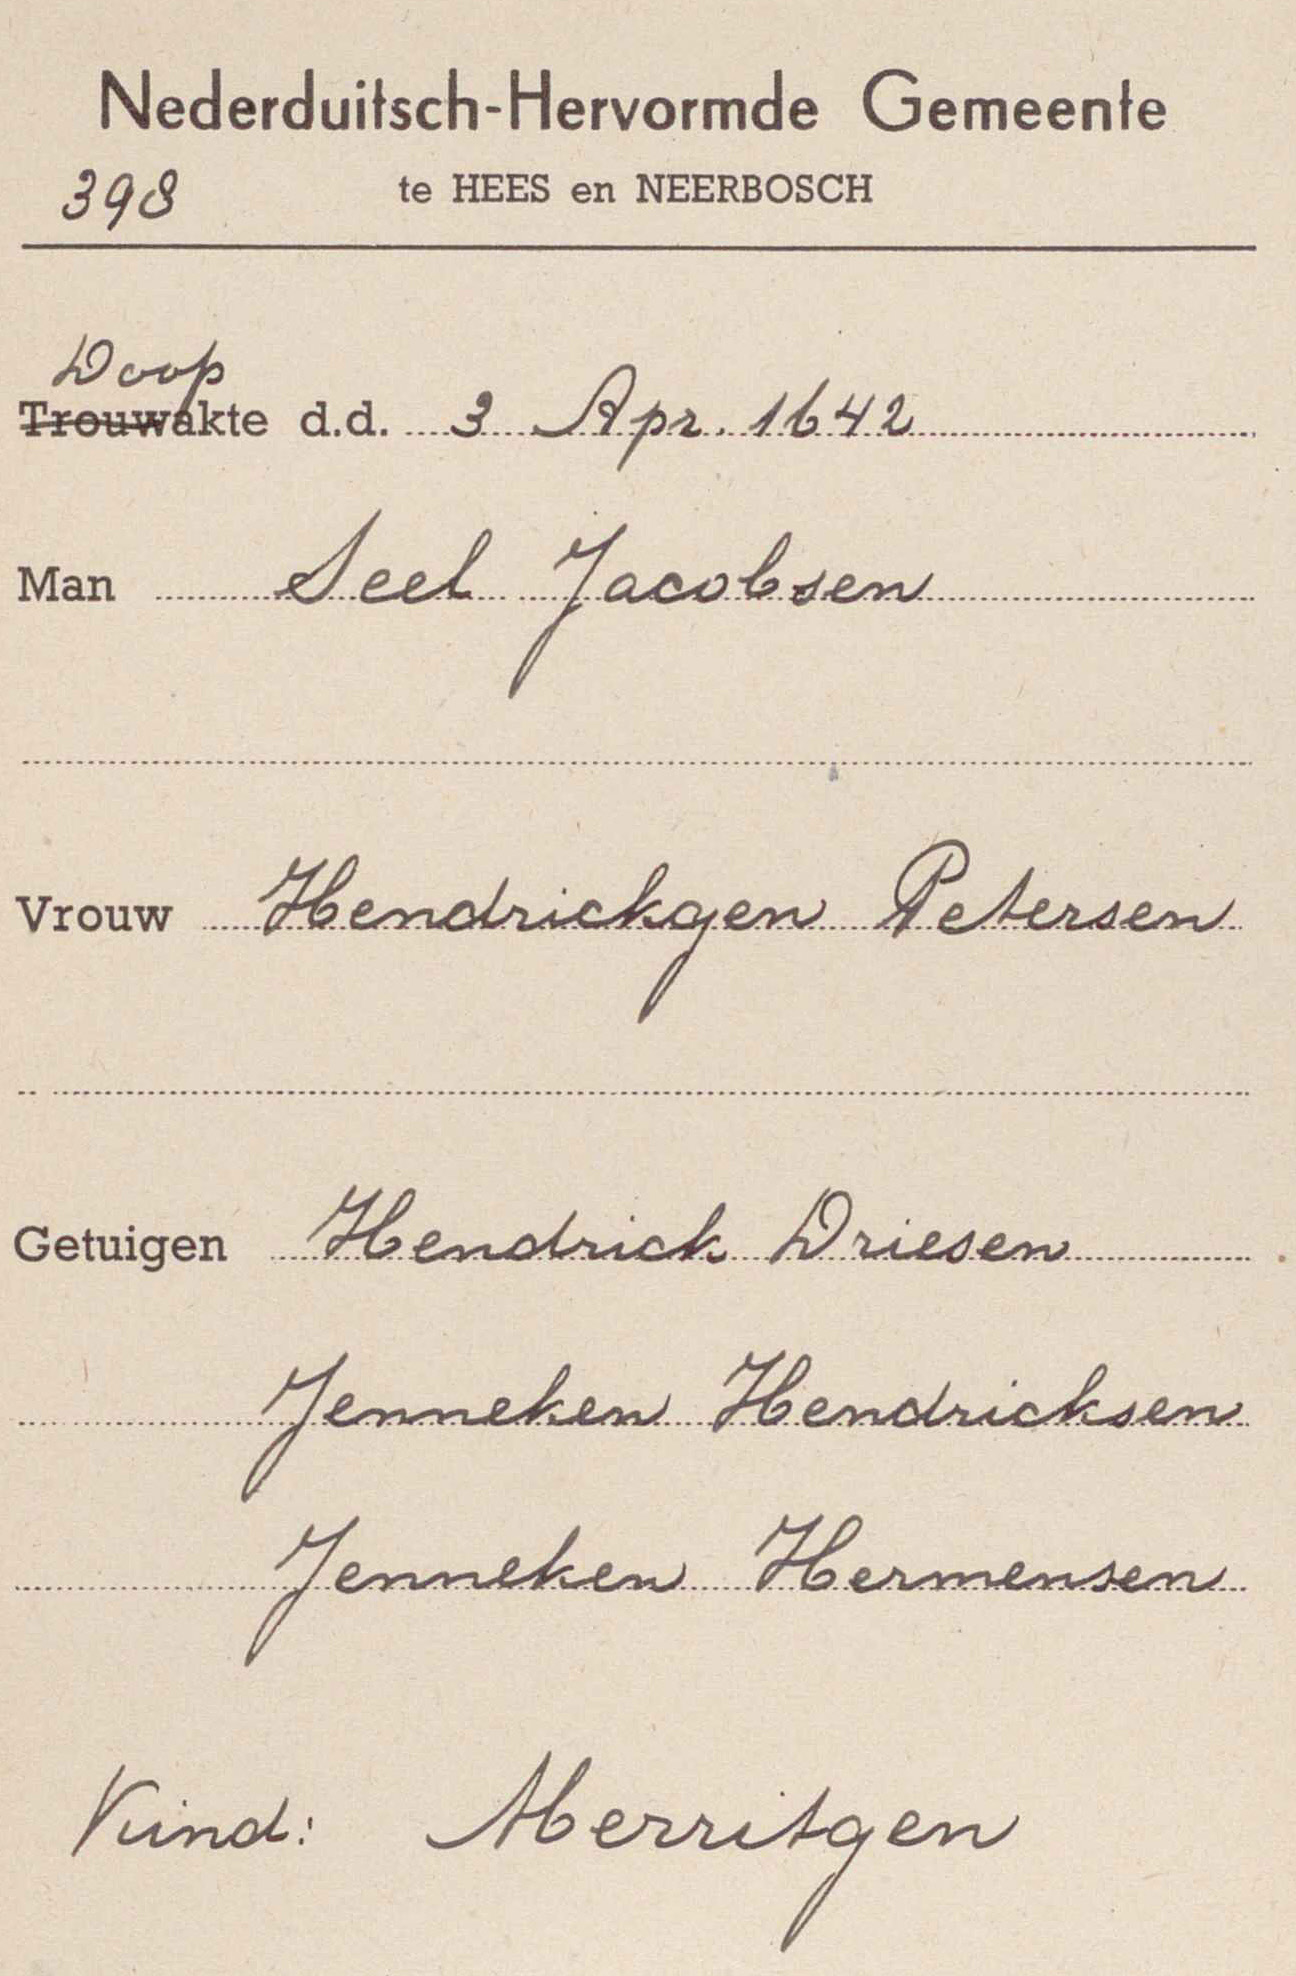 Nederduitsch-Hervormde Gemeente
398 te HEES en NEERBOSCH
Doop
Trouwakte d.d. 3 Apr. 1642
Man Seel Jacobsen
Vrouw Hendrickgen Petersen
Getuigen Hendrick Driesen
Jenneken Hendricksen
Jenneken Hermensen
Kind: Merritgen